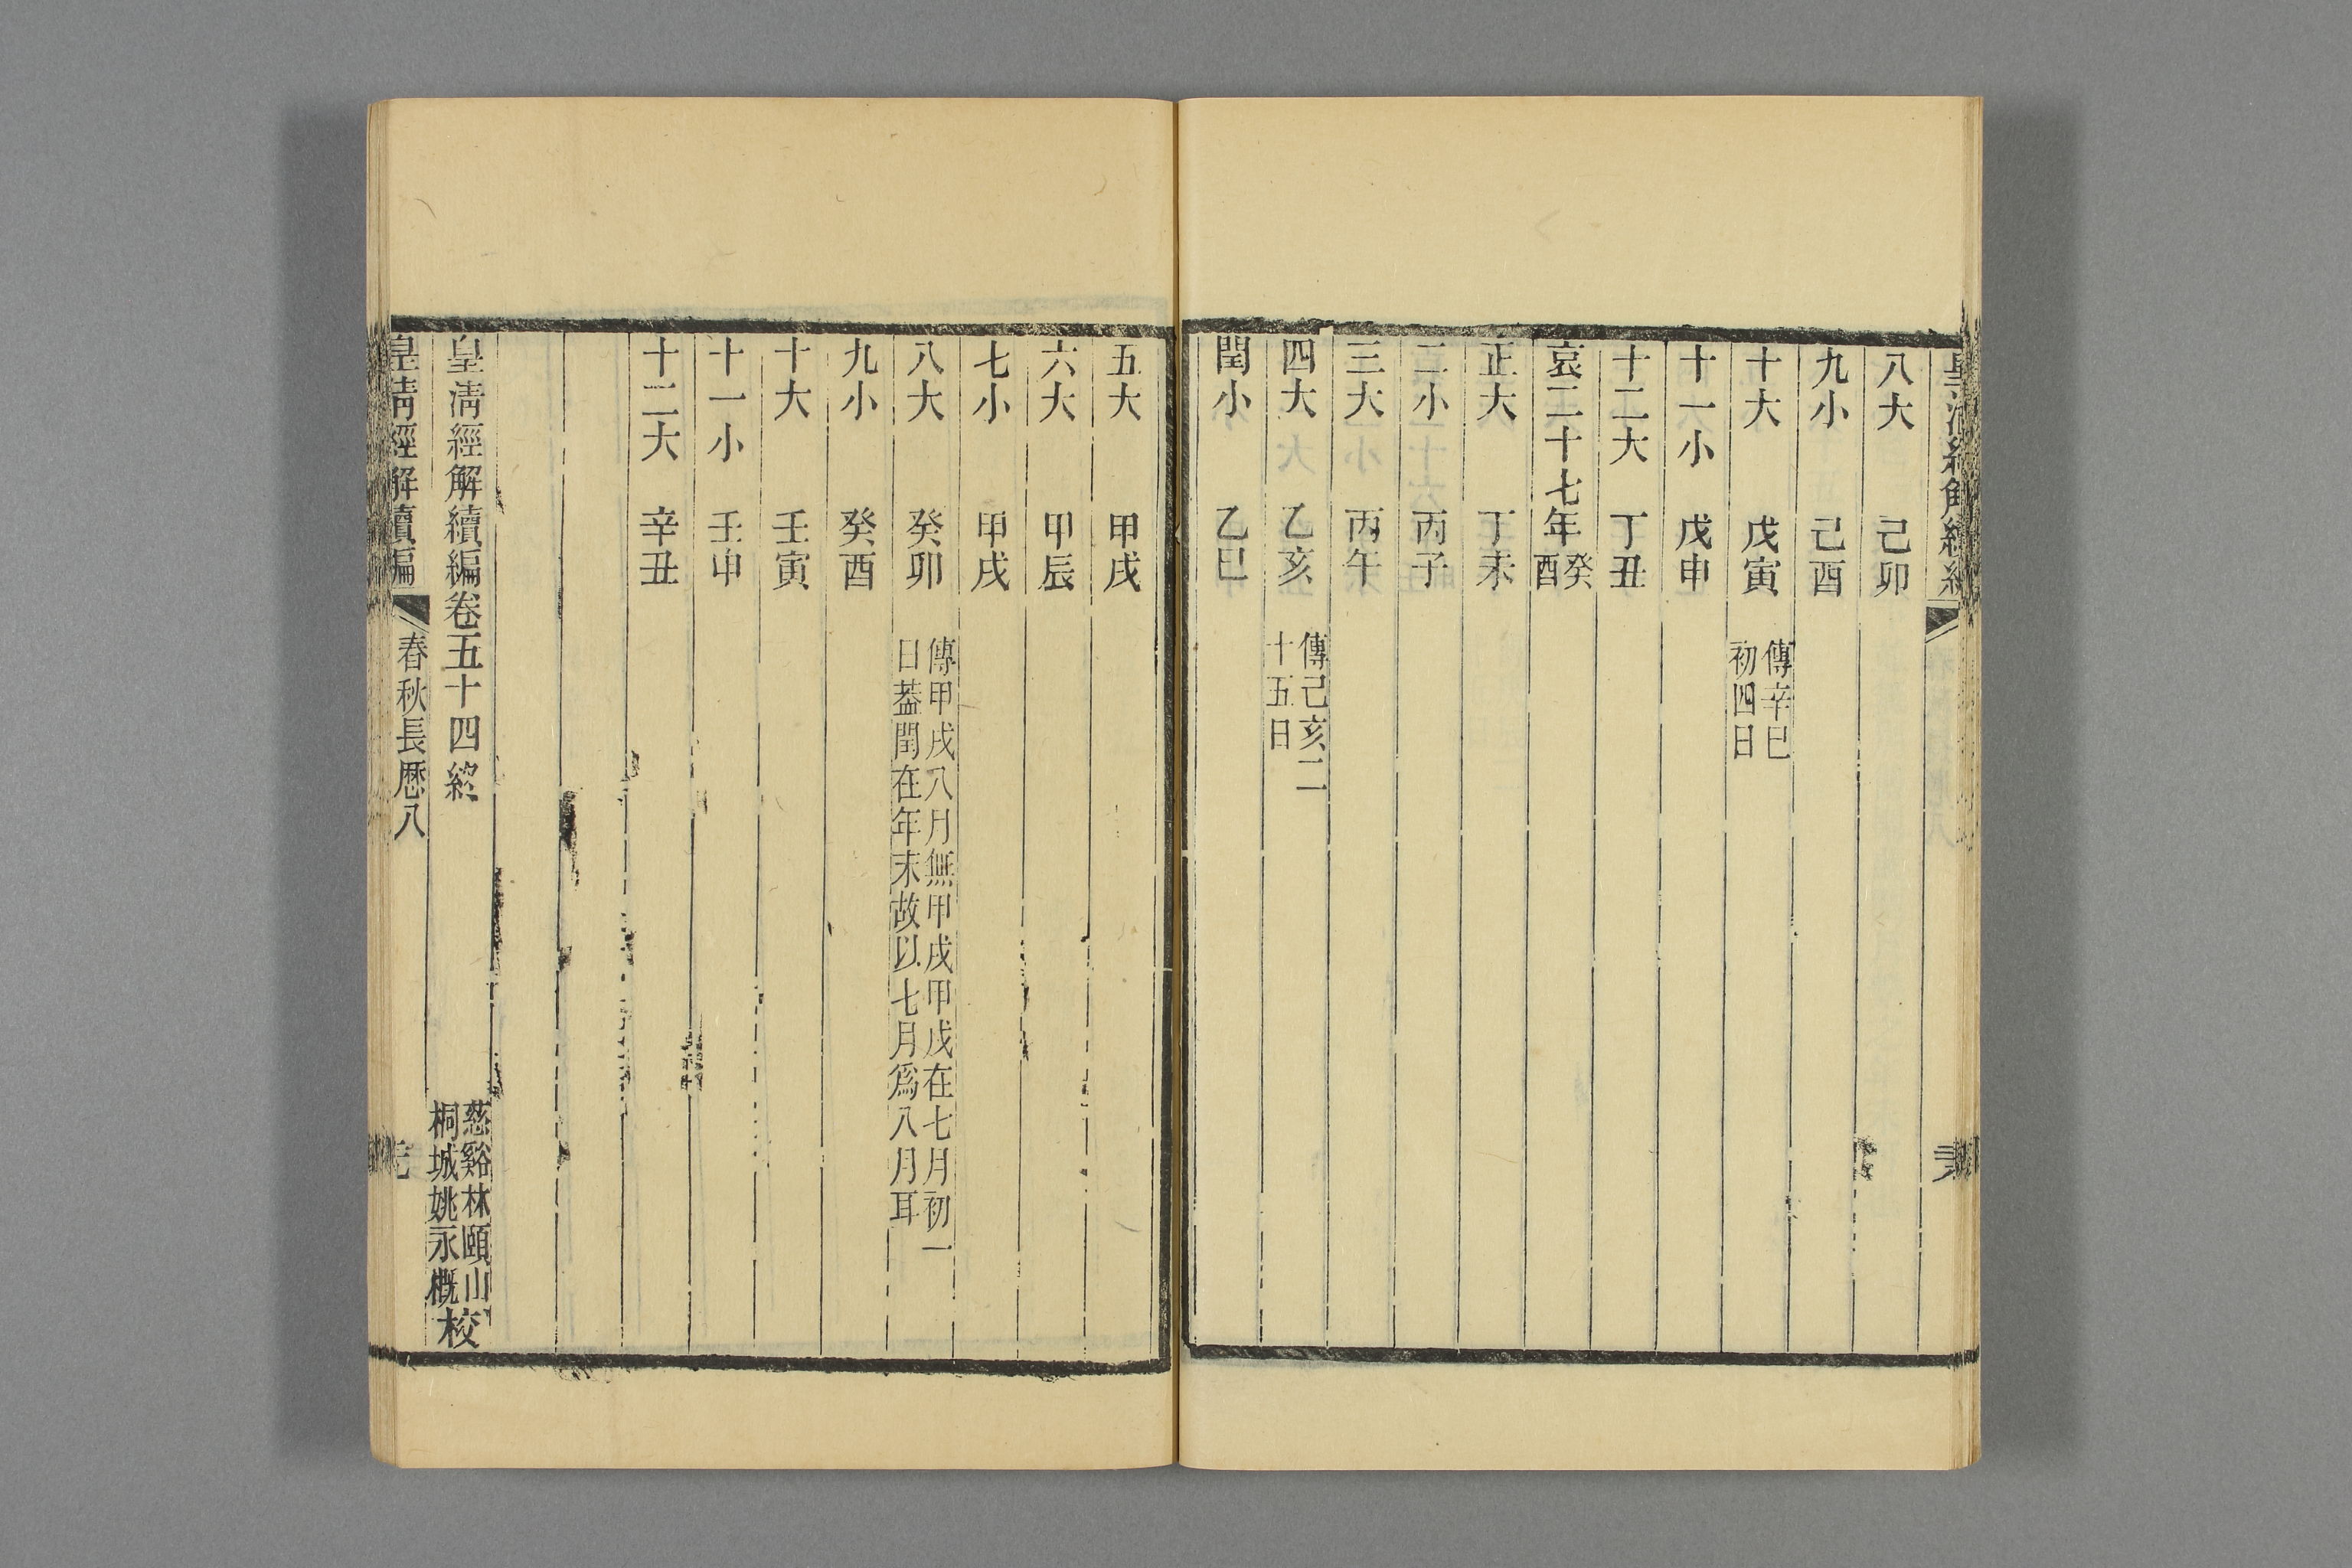 八大 己卯
九小 己酉
十大 戊寅 傳辛巳
初四日
十一小 戊申
十二大 丁丑
哀二十七年癸酉
正大 丁未
二小 丙子
三大 丙午
四大 乙亥 傳己亥二
十五日
閏小 乙巳
五大 甲戌
六大 甲辰
七小 甲戌
八大 癸卯 傳甲戌八月無甲戌甲戌在七月初一
日葢閏在年末故以七月爲八月耳
九小 癸酉
十大 壬寅
十一小 壬申
十二大 辛丑
皇淸經解續編卷五十四終
慈谿林頤山
桐城姚永概校
皇淸經解續編 春秋長厯八